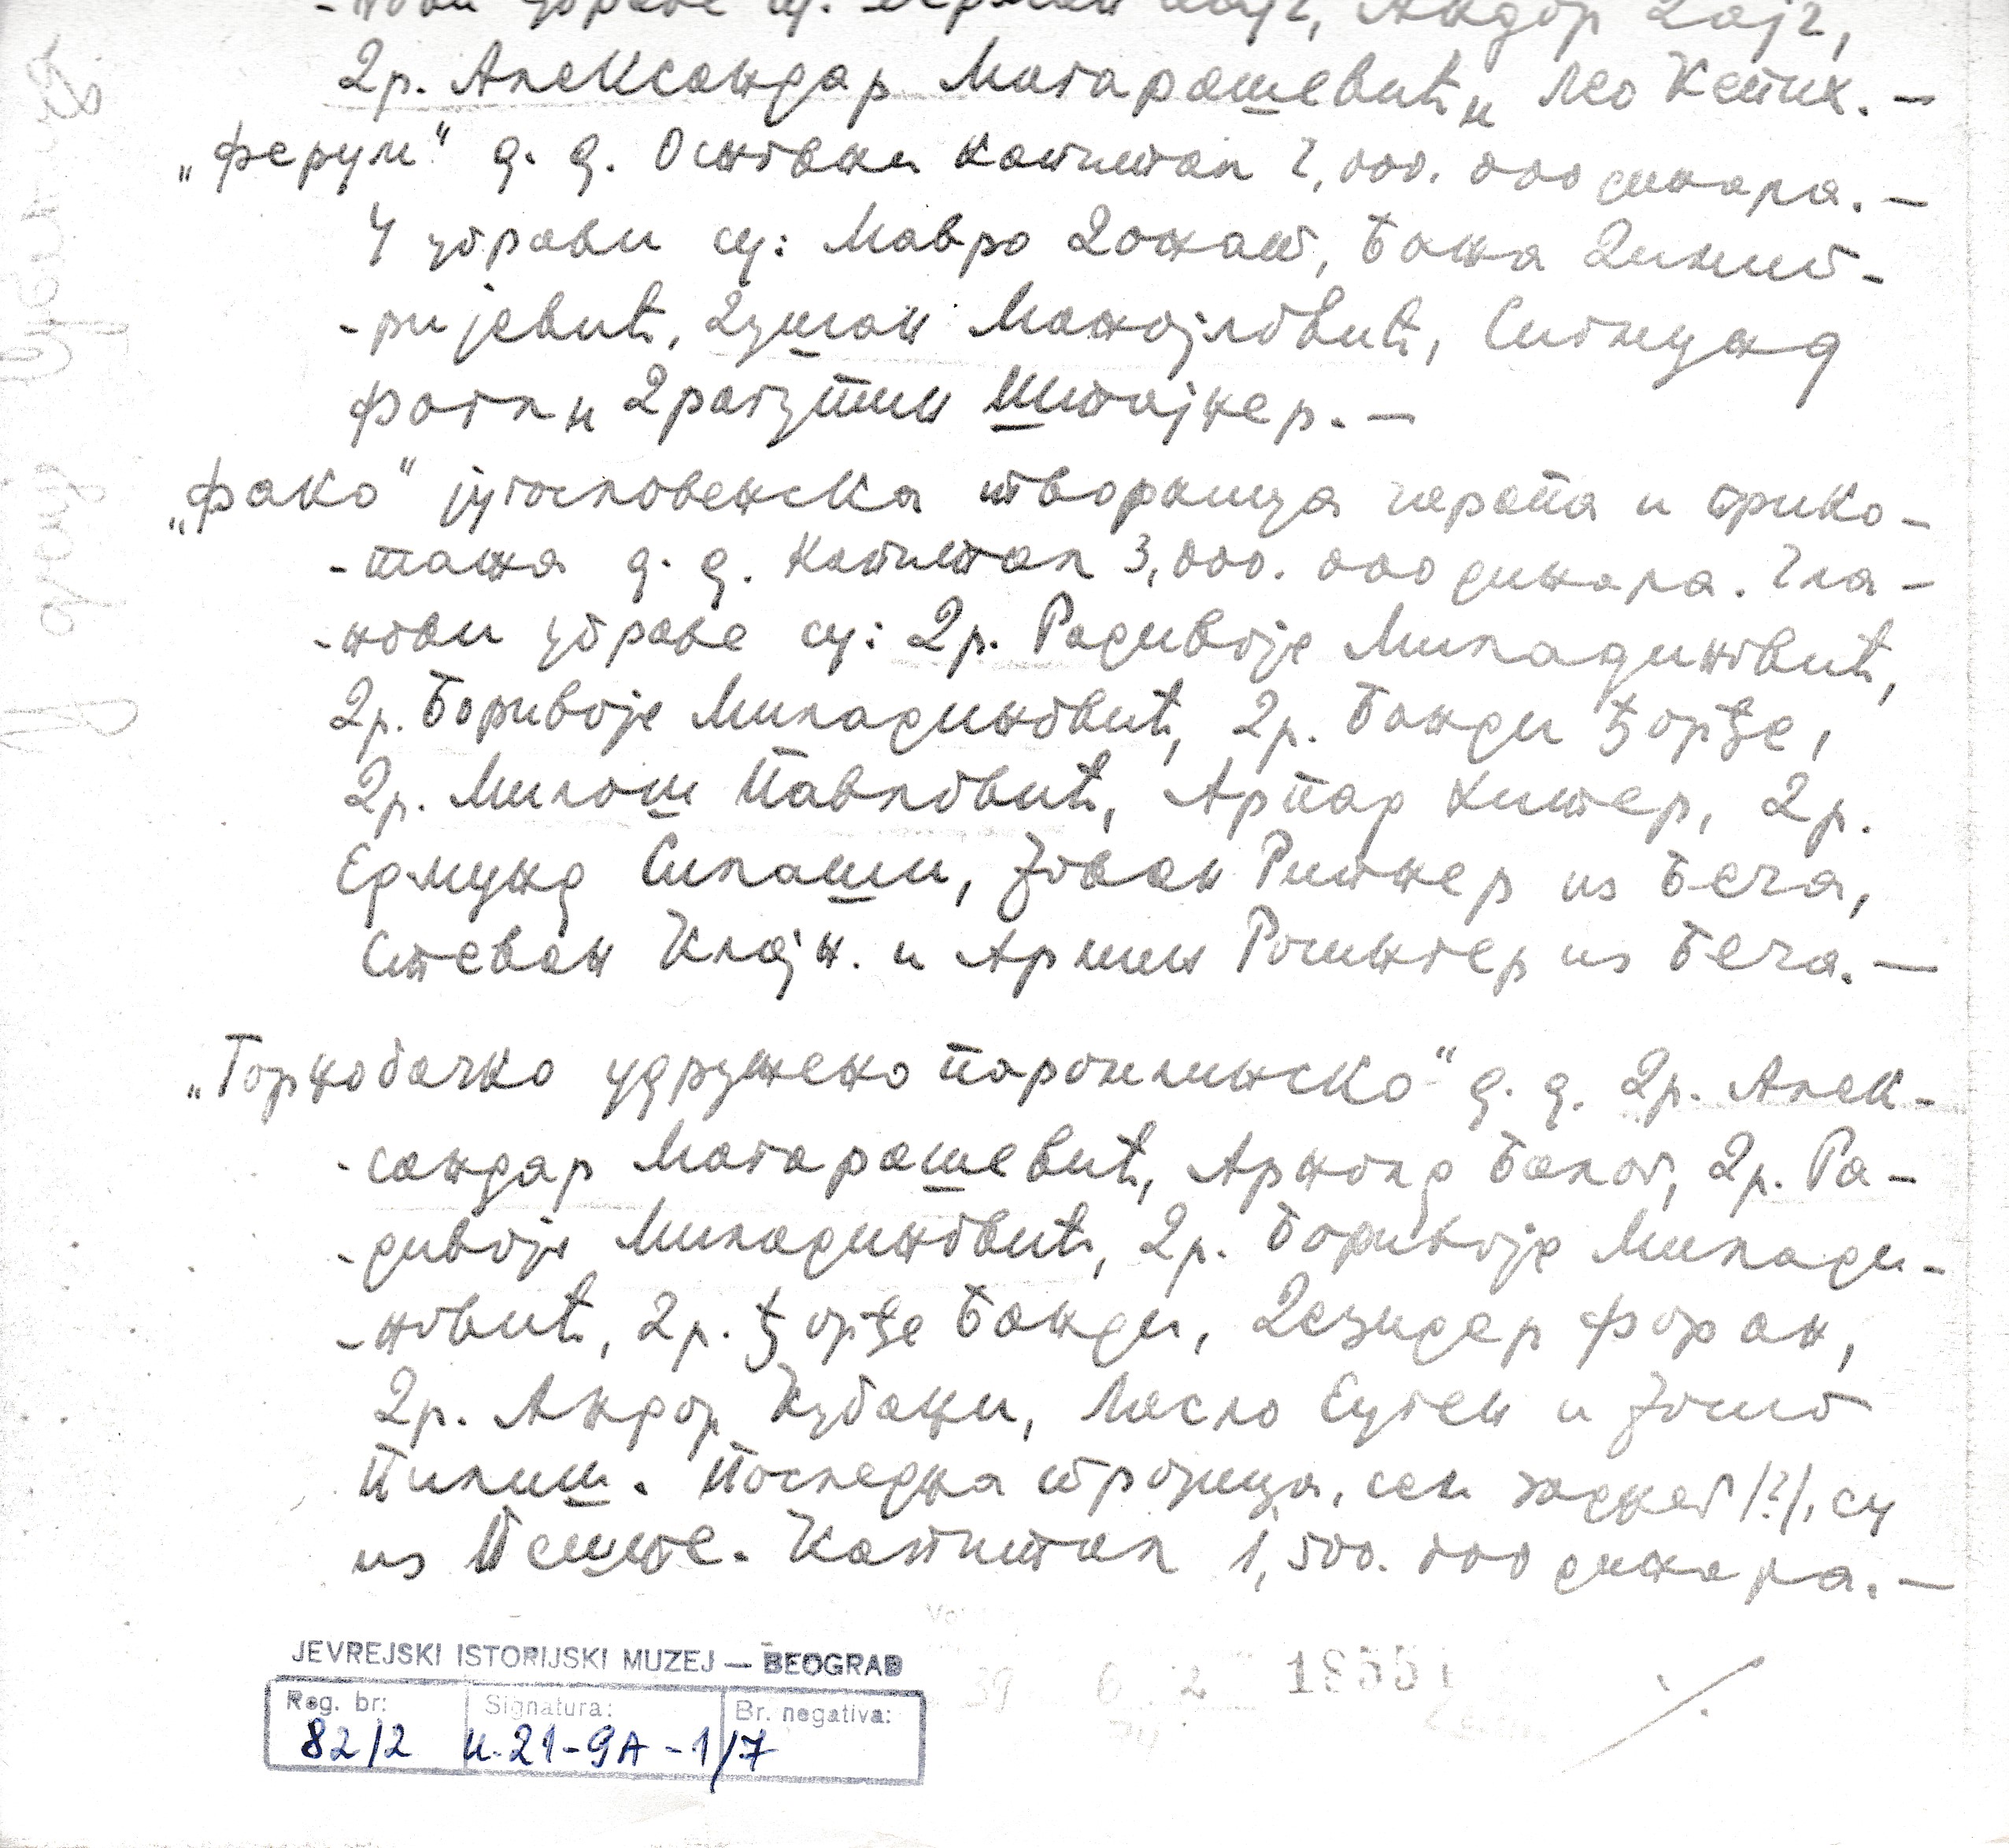 -нови управе су: Андор Дајч,
Др. Александар Магарашевић и Лео Кепих. —
„Ферум" д. д. Основни капитал 2,000.000 динара. —
У управи су: Мавро Донат, Божа Димит-
-ријевић, Душан Манојловић, Сигмунд
и Драгутин Штајнер. —
„Фако" југословенска творница чарапа и трико-
-тажа д. д. Капитал 3,000.000 динара. Чла-
-нови управе су: Др. Радивоје Миладиновић,
Др. Боривоје Миладиновић, Др. Банди Ђорђе,
Др. Милош Павловић, Арпад Китер, Др.
Едмунд Силаши, Јован Ритнер из Беча,
Стеван Клајн. и Армин Росингер из Беча. —
„Горњобачко удружено паромлинско" д. д. Др. Алек-
-сандар Магарашевић, Арнолд Балог, Др. Ра-
-дивоје Миладиновић, Др. Боривоје Милади-
-новић, Др. Ђорђе Банди, Дезидер Форан,
Др. Андор Кубањи, Ласло Еуген и Јосип
Пилиш. Последња тројица, /?/, су
из Пеште. Капитал 1,500.000 динара. —
JEVREJSKI ISTORIJSKI MUZEJ — BEOGRAD
Reg. br: Signatura: Br. negativa:
82/2 к.21-9А-1/7